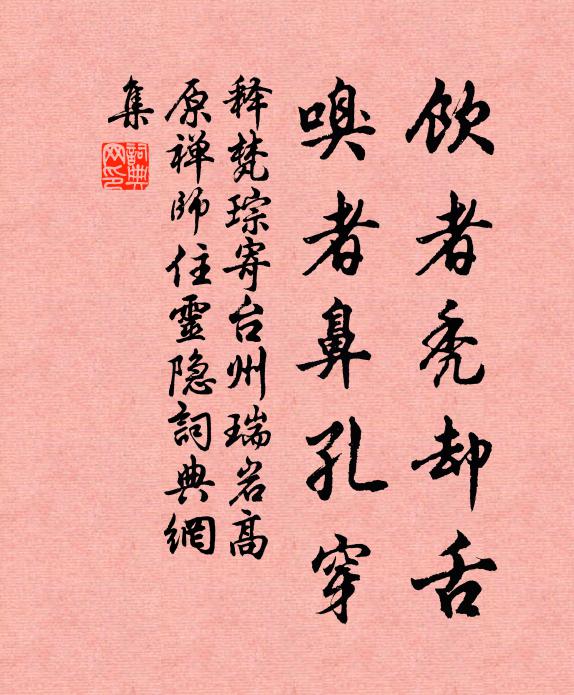 飲者禿却舌
嗅者鼻孔穿
释梵琮寄台州瑞岩高
原禅师住靈隐詞典網
集
詞典網印